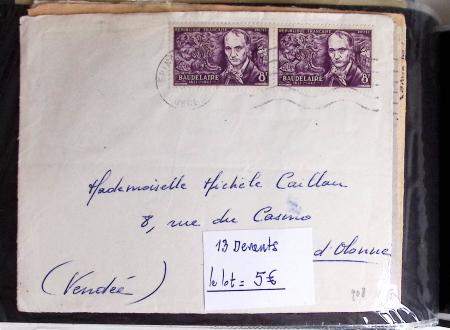 REPUBLIQUE FRANÇAISE
BAUDELAIRE
1821-1867
8F
REPUBLIQUE FRANÇAISE
BAUDELAIRE
1821-1867
8F
Mademoiselle Michèle Caillau
8, rue du Casino
d'Olonne
(Vendée)
13 Devants
le lot = 5€
908